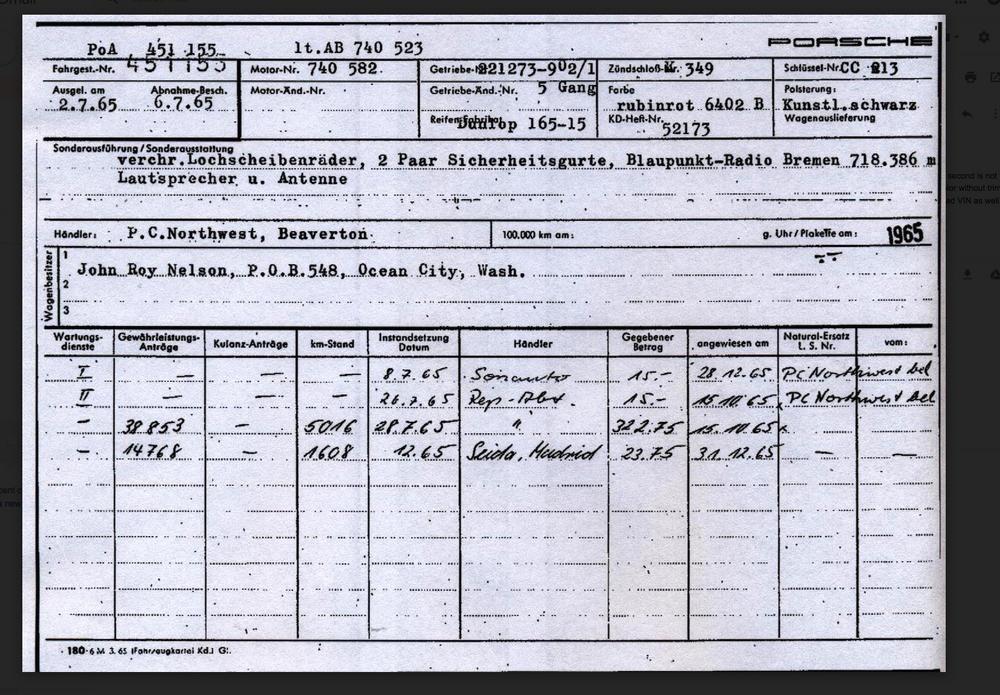 PoA 451 155 lt.AB 740 523 PORSCHE
Fahrgest.-Nr. 451155 Motor-Nr. 740 582 Getriebe-Nr. 221273-902/1 Zündschloß-Nr. 349 Schlüssel-Nr. CC 213
Ausgel. am Abnahme-Besch. Motor-Änd.-Nr. Getriebe-Änd.-Nr. 5 Gang Farbe Polsterung:
2.7.65 6.7.65 rubinrot 6402 B Kunstl.schwarz
Reifenfabrikat Dunlop 165-15 KD-Heft-Nr. 52173 Wagenauslieferung
Sonderausführung / Sonderausstattung
verchr.Lochscheibenräder, 2 Paar Sicherheitsgurte, Blaupunkt-Radio Bremen 718.386 m
Lautsprecher u. Antenne
Händler: P.C.Northwest, Beaverton 100.000 km am: g. Uhr / Plakette am: 1965
Wagenbesitzer
1 John Roy Nelson, P.O.B.548, Ocean City, Wash.
2
3
Wartungs-dienste Gewährleistungs-Anträge Kulanz-Anträge km-Stand Instandsetzung Datum Händler Gegebener Betrag angewiesen am Natural-Ersatz L. S. Nr. vom:
I — — — 8.7.65 Sonauto 15.- 28.12.65 PC Northwest bel
II — — — 26.7.65 Rep-Abt. 15.- 15.10.65 PC Northwest bel
— 38853 — 5016 28.7.65 " 322.75 15.10.65
— 14768 — 1608 12.65 Seida, Madrid 23.75 31.12.65 — —
180·6 M 3. 65 (Fahrzeugkartei Kd.) G.
second is not
or without trim
ed VIN as well